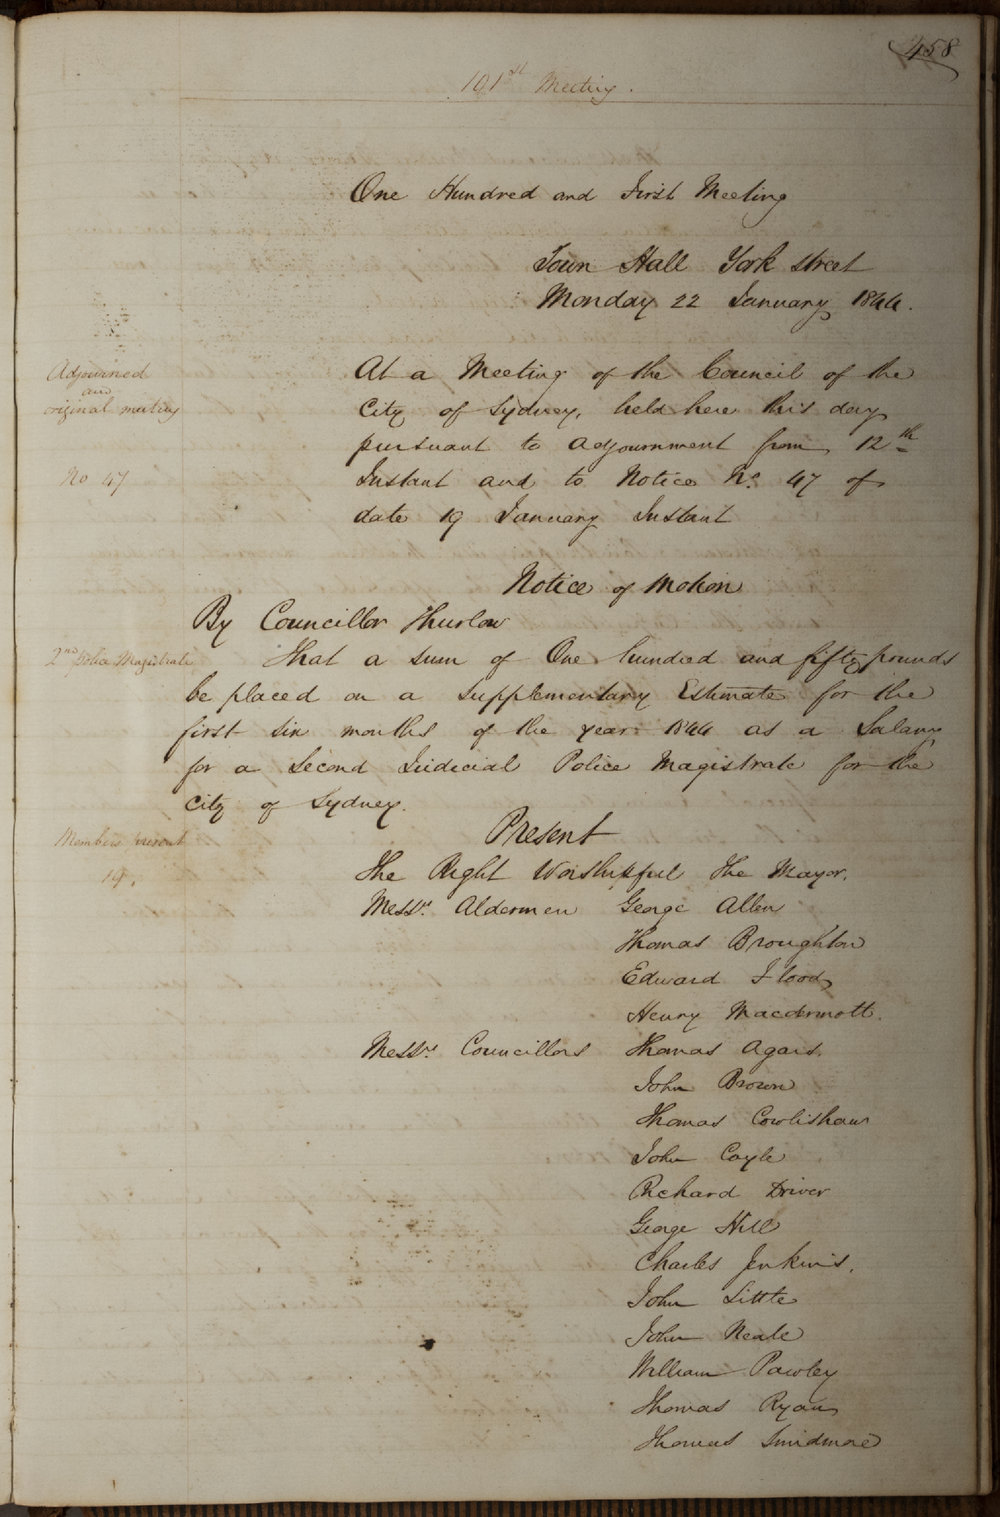 458
101st Meeting.
One Hundred and First Meeting
Town Hall York street
Monday 22 January 1844.
Adjourned
and
original meeting
At a Meeting of the Council of the
City of Sydney, held here this day
pursuant to adjournment from 12th
No 47
Instant and to Notice No. 47 of
date 19 January Instant
Notice of Motion
By Councillor Thurlow
2nd Police Magistrate
That a sum of One hundred and fifty pounds
be placed on a Supplementary Estimate for the
first six months of the year 1844 as a Salary
for a Second Judicial Police Magistrate for the
City of Sydney.
Present
Members present
19.
The Right Worshipful The Mayor.
Messrs. Aldermen George Allen
Thomas Broughton
Edward Flood
Henry Macdermott.
Messrs. Councillors Thomas Agars
John Brown
Thomas Cowlishaw
John Coyle
Richard Driver
George Hill
Charles Jenkins.
John Little
John Neale
William Pawley
Thomas Ryan
Thomas Smidmore